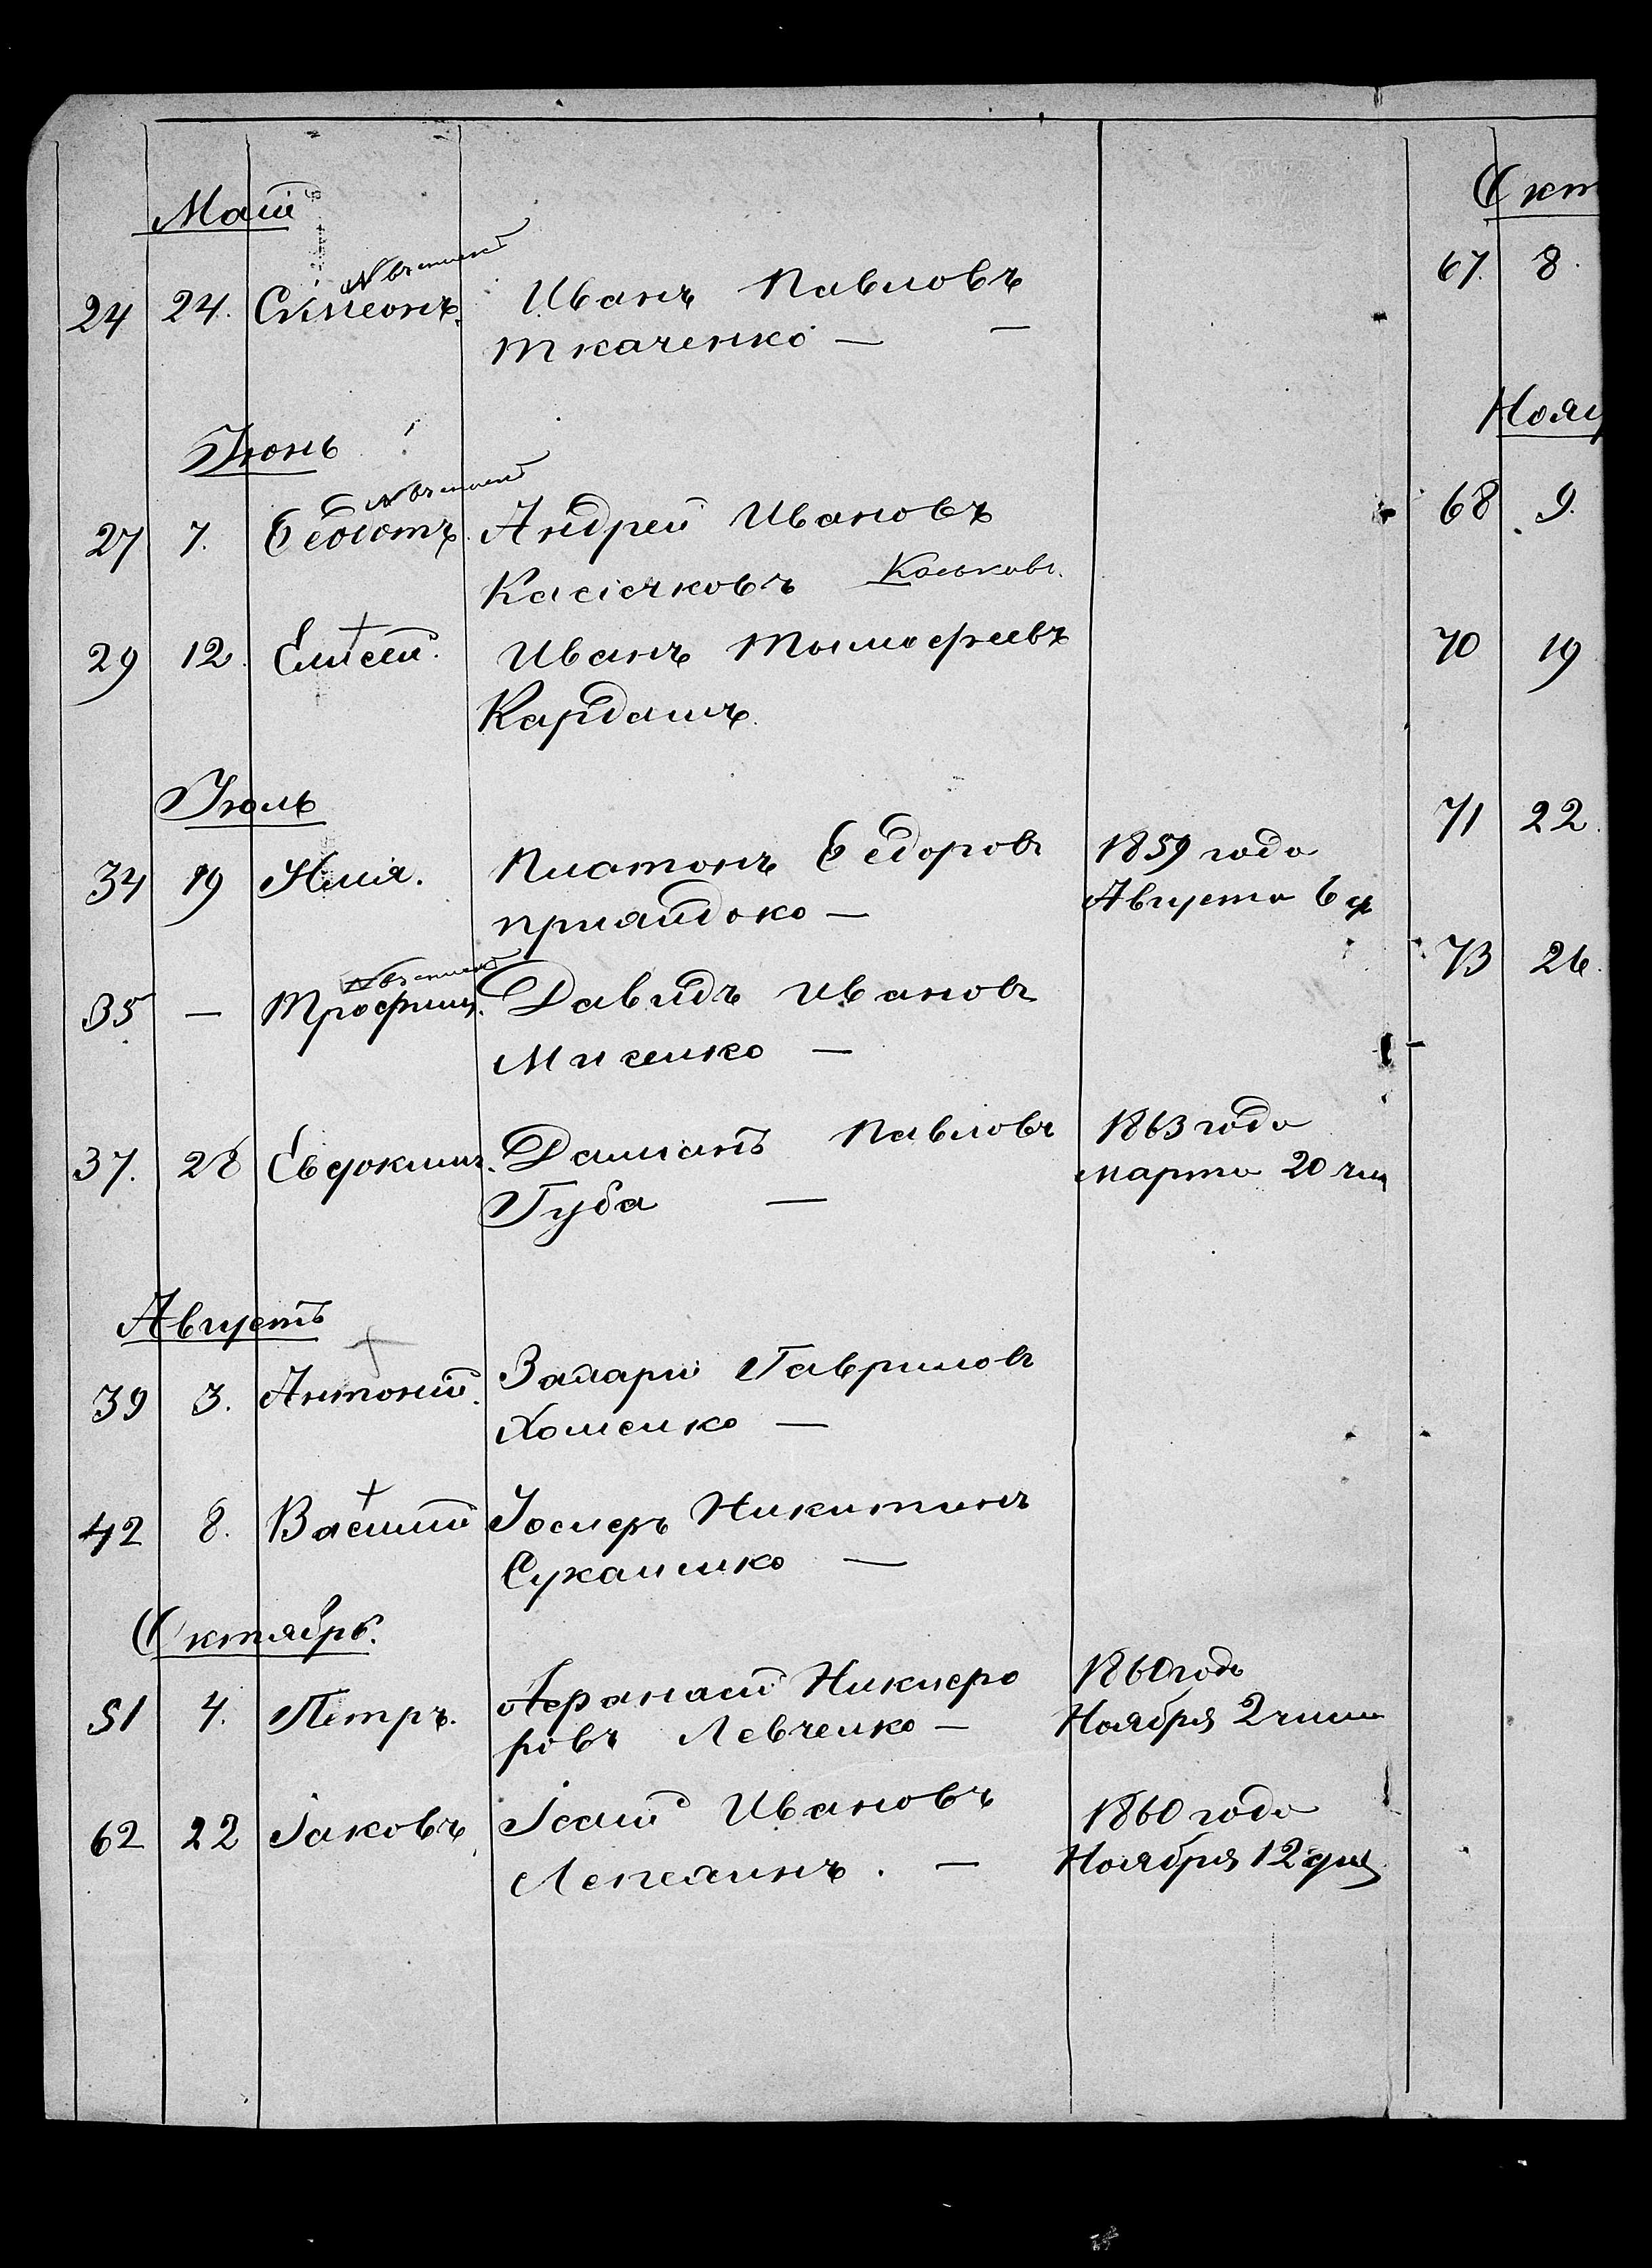 Маій
24 24. Симеонъ. Иванъ Павловъ
Ткаченко — —
Іюнь
27 7. Ѳеодотъ. Андрей Ивановъ
Касіячковъ Каськовъ.
29 12. Елисей. Иванъ Тымофеевъ
Кардашъ.
Іюль
34 19 Илія. Платонъ Ѳедоровъ 1859 года
Августа 6
35 — Трофимъ. Давидъ Ивановъ
—
37. 28 Евдокимъ. Даміанъ Павловъ 1863 года
Губа — марта 20
Августъ
39 3. Антоній. Захарій Гавриловъ
Хоменко —
42 8. Василій Іосифъ Никитинъ
—
Октябрь.
51 4. Петръ. Афанасій Никифо 1860 года
ровъ Левченко — Ноября 2 числа
62 22 Іаковъ, Ісаій Ивановъ 1860 года
. — Ноября 12 дня
Окт
67. 8.
Нояб
68 9.
70 19
71 22.
73 26.